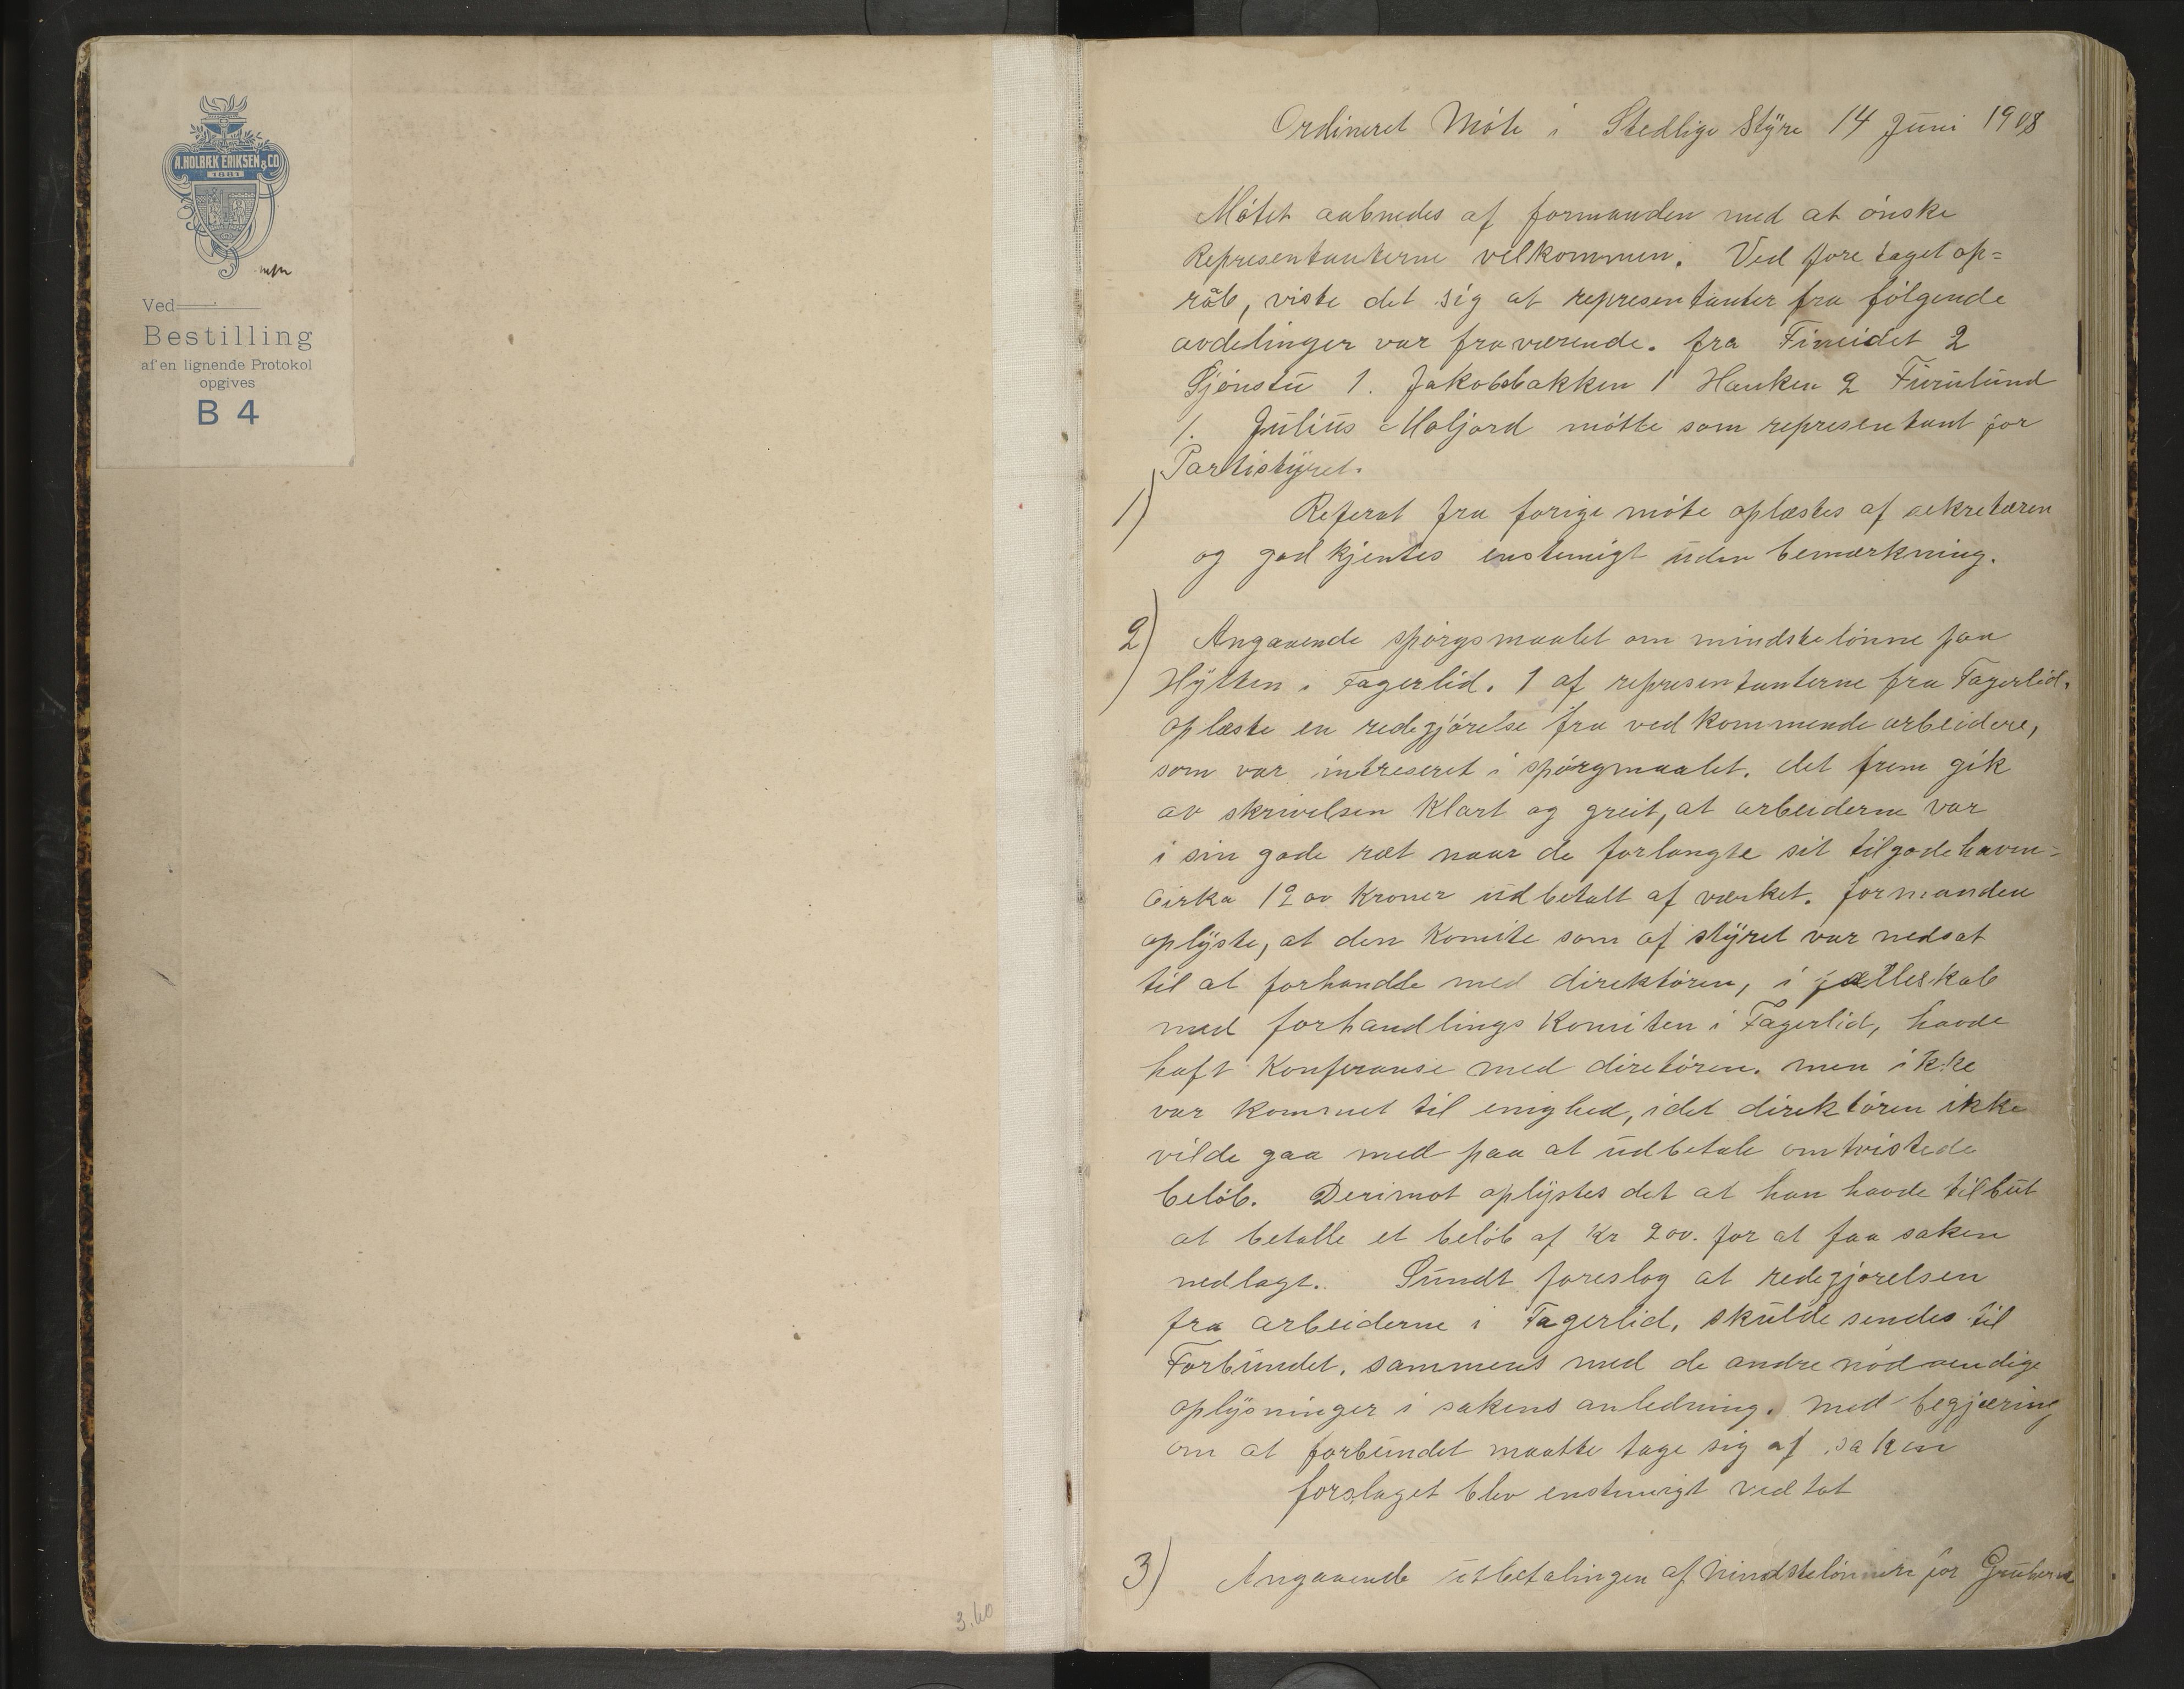 A. HOLBÆK ERIKSEN & CO
1881
Ved
Bestilling
af en lignende Protokol
opgives
B 4
3.60
Ordineret Móte i Stedlige Styre 14 Juni 1908
Mótet aabnedes af formanden med at ónske
Representanterne velkommen. Ved fore taget op=
råb, viste det sig at representanter fra fölgende
avdelinger var fraværende. fra Fineidet 2
Sjónstu 1. Jakobsbakken 1 Hanken 2 Furulund
1. Julius Moljord mótte som representant for
Partistyret.
1) Referat fra forige móte oplæstes af sekretæren
og god kjentes enstemigt uden bemærkning.
2) Angaaende spórgsmaalet om mindstelónne paa
Hytten i Fagerlid. 1 af representanterne fra Fagerlid.
oplæste en redegjórelse fra ved kommende arbeidere,
som var intreseret i spórgmaalet. det frem gik
av skrivelsen klart og greit, at arbeiderne var
i sin gode ræt naar de forlangte sit tilgodehaven-
Cirka 1200 Kroner udbetalt af værket. formanden
oplyste, at den Komite som af styret var nedsat
til at forhandle med direktóren, i fælleskab
med forhandlings Komiten i Fagerlid, havde
haft Konferanse med diretóren. men ikke
var kommet til enighed, idet direktóren ikke
vilde gaa med paa at udbetale omtvistede
belób. Derimot oplystes det at han havde tilbut
at betalle et belób af Kr 200. for at faa saken
nedlagt. Sundt foreslog at redegjorelsen
fra arbeiderne i Fagerlid, skulde sendes til
Forbundet. sammens med de andre nódvendige
oplysninger i sakens anledning. med begjæring
om at forbundet maatte tage sig af saken
forslaget blev enstemigt ved tat
3) Angaaende utbetalingen af Mindstelónnen for Gruberne